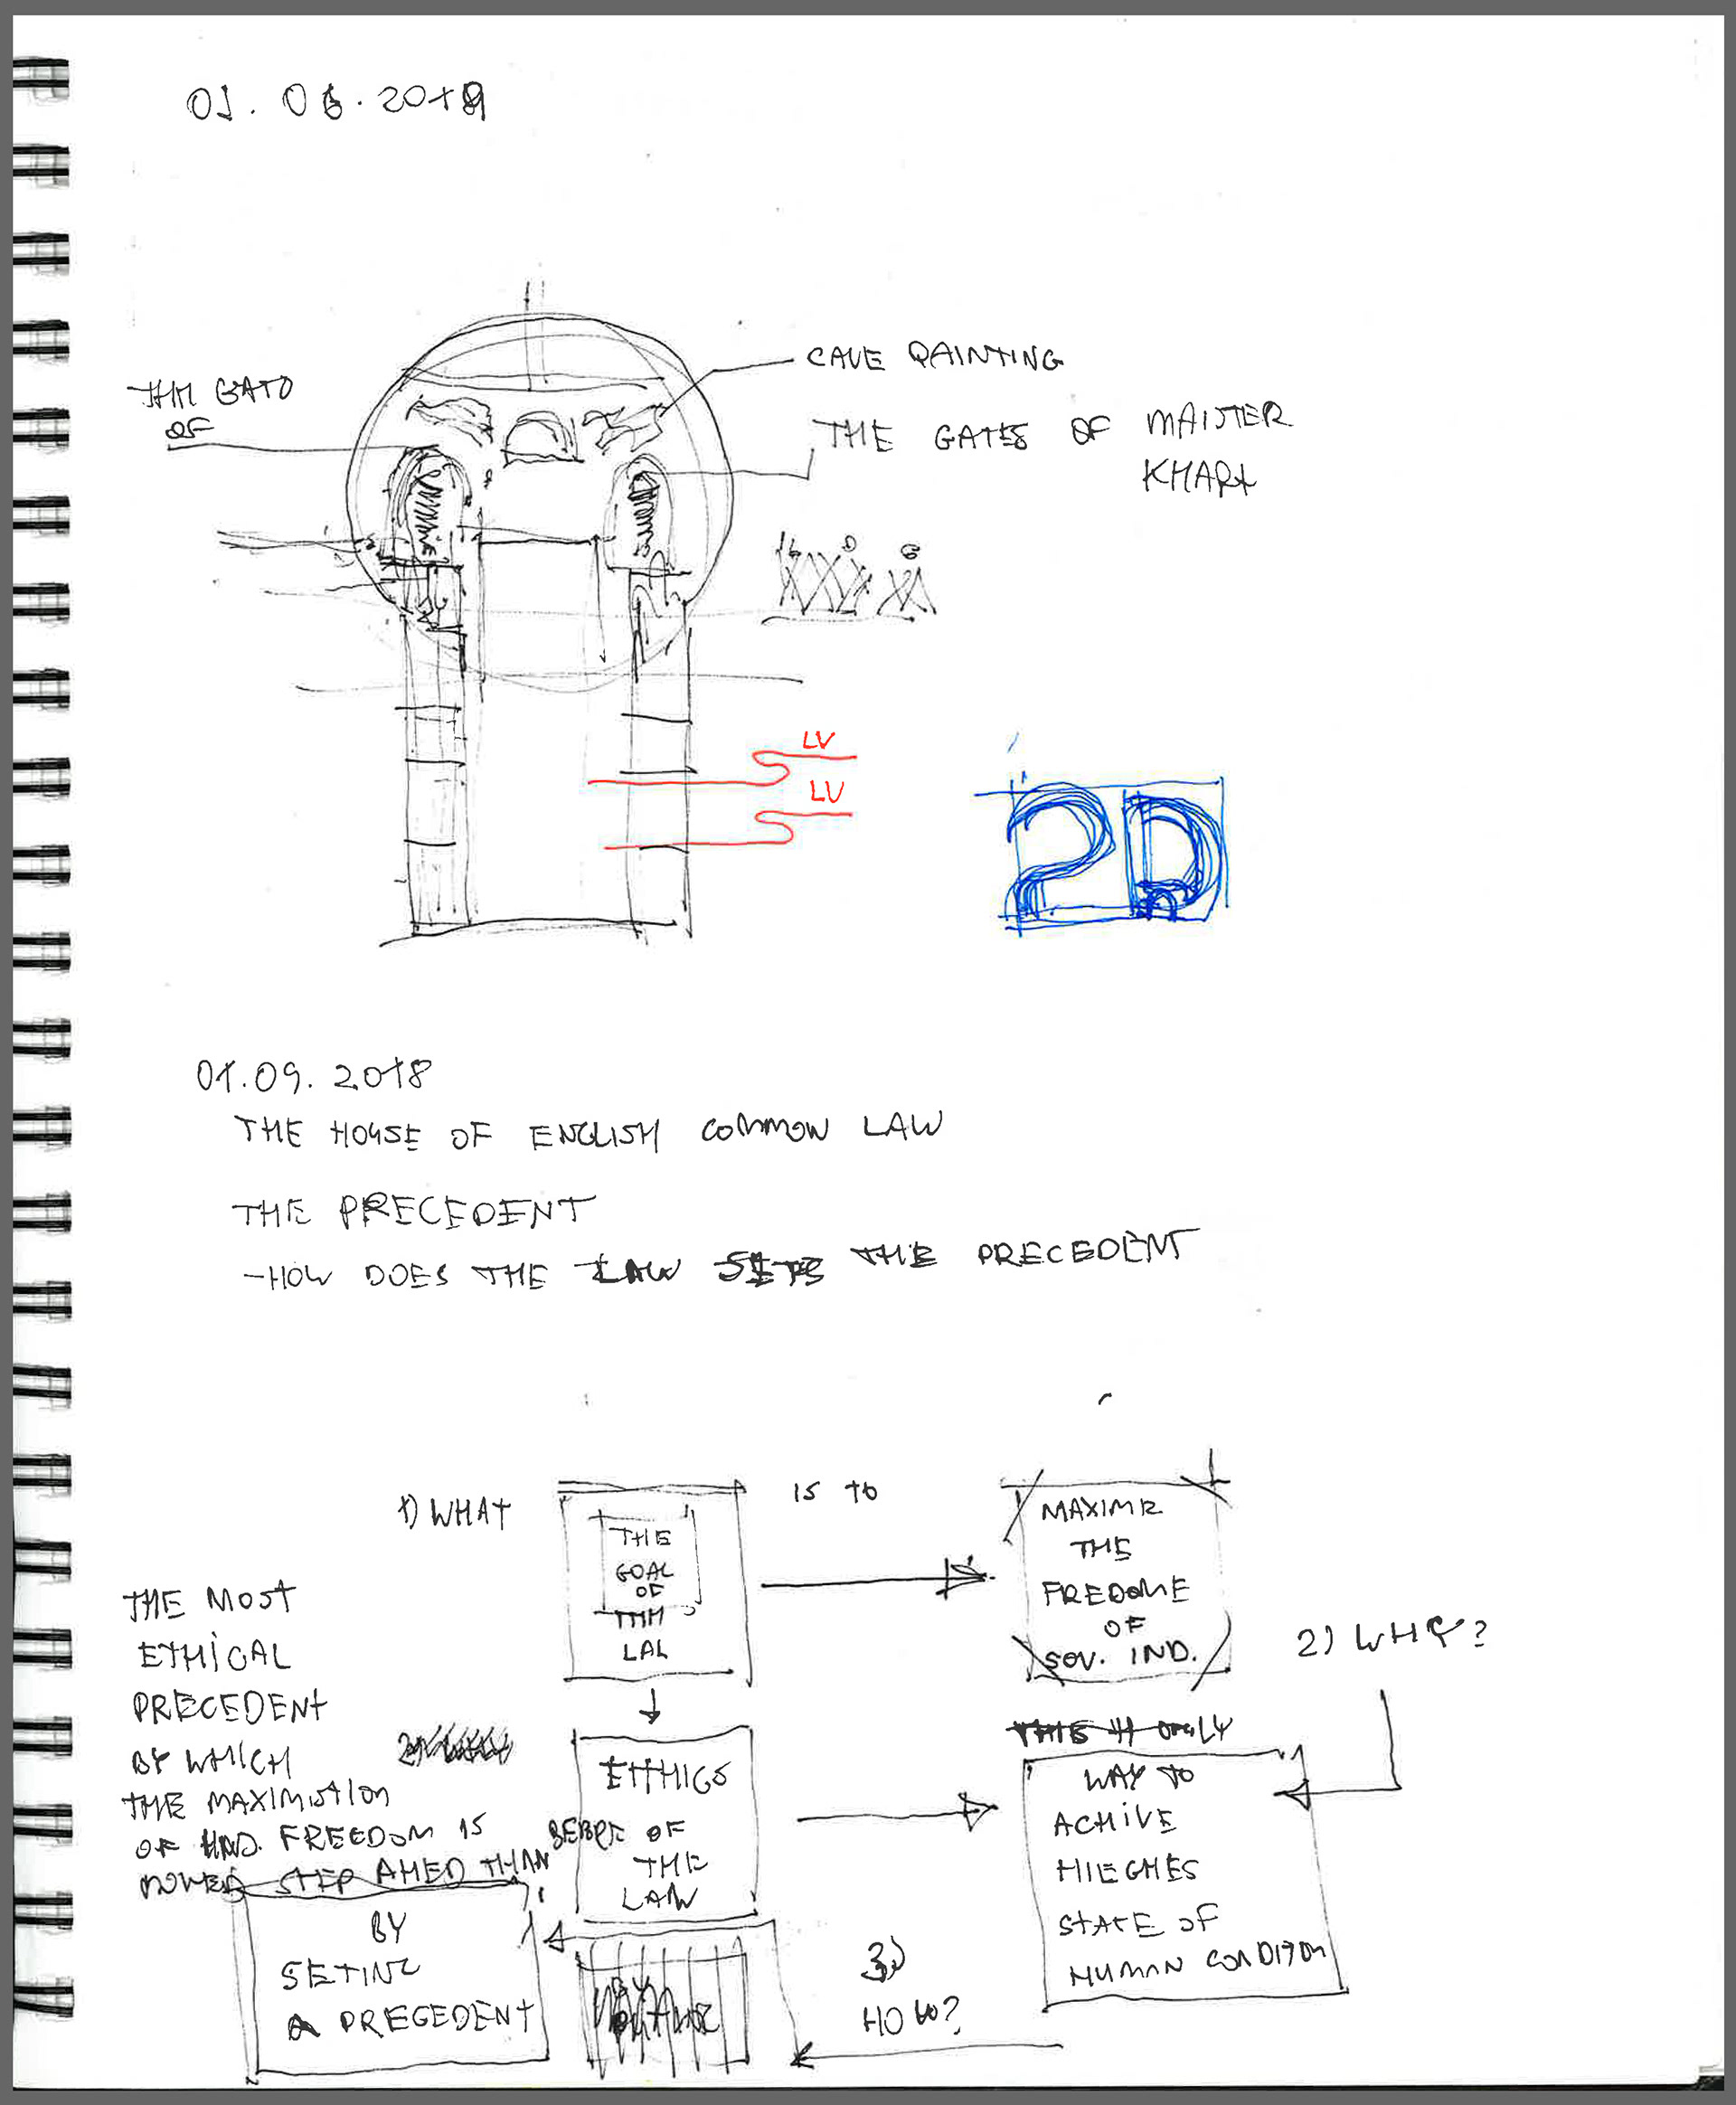 01.06.2018
CAVE PAINTING
THM GATO
OF
THE GATES OF MAISTER
KHART
LV
LV
2D
01.09.2018
THE HOUSE OF ENGLISH COMMON LAW
THE PRECEDENT
-HOW DOES THE LAW SETS THE PRECEDENT
1) WHAT
THE
GOAL
OF
THM
LAL
IS TO
MAXIMR
THE
FREDOME
OF
SOV. IND.
2) WHY?
THE MOST
ETHICAL
PRECEDENT
BY WHICH
THE MAXIMISTION
OF IND. FREEDOM IS
STEP AHED THAN
BEBRE OF
ETTHICS
THE
LAW
THIS ONLY
WAY TO
ACHIVE
HIEGHES
STATE OF
HUMAN CONDITON
3)
HOW?
BY
SETING
A PRECEDENT